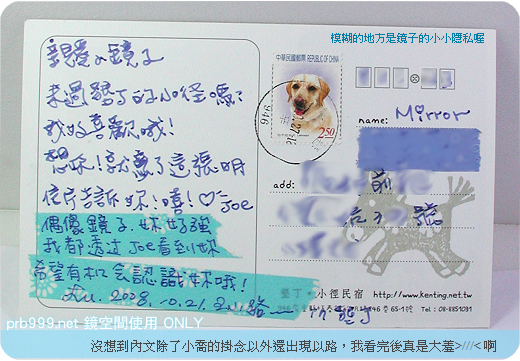 模糊的地方是鏡子的小小隱私喔
親愛的鏡子
來過墾丁的小徑嗎?
我好喜歡哦!
想妳!就寫了這張明
信片告訴妳!嘻!♡Joe
偶像鏡子.妳好強
我都透过Joe看到妳
希望有机会認識妳哦!
2008.10.21
中華民國郵票 REPUBLIC OF CHINA
2.50
946
name: Mirror
add:
前
號
墾丁·小徑民宿 http://www.kenting.net.tw
65-1號 Tel:08-8851091
prb999.net 鏡空間使用 ONLY
沒想到內文除了小喬的掛念以外還出現以路,我看完後真是大羞>///<啊